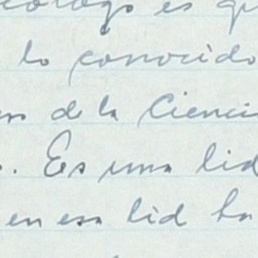 es qu
lo conocido
de la Ciencia
. Es una lid
en esa lid ha